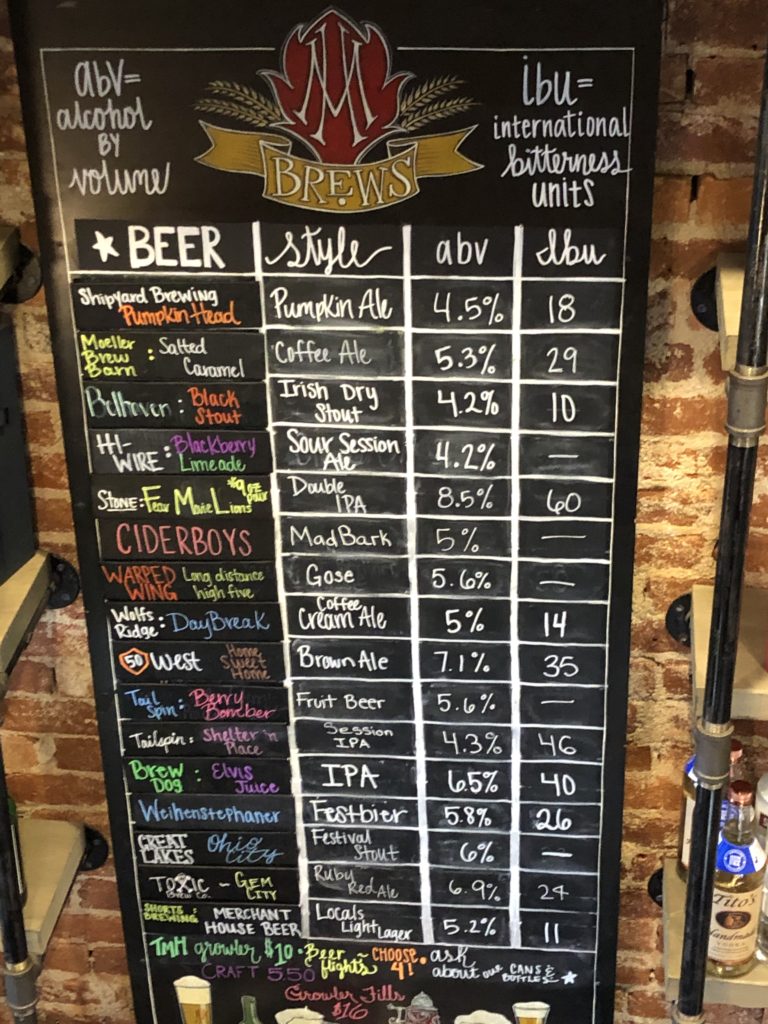 abv=
alcohol
BY
volume
M
BREWS
ibu=
international
bitterness
units
★ BEER style abv Ibu
Shipyard Brewing Pumpkin Head Pumpkin Ale 4.5% 18
Moeller Brew Barn: Salted Caramel Coffee Ale 5.3% 29
Belhaven: Black Stout Irish Dry Stout 4.2% 10
HI-WIRE: Blackberry Limeade Sour Session Ale 4.2% —
STONE: Fear Movie Lions *9oz pour Double IPA 8.5% 60
CIDERBOYS Mad Bark 5% —
WARPED WING Long distance high five Gose 5.6% —
Wolfs Ridge: DayBreak Coffee Cream Ale 5% 14
50 West Home Sweet Home Brown Ale 7.1% 35
Tail Spin: Berry Bomber Fruit Beer 5.6% —
Tailspin: Shelter 'n Place Session IPA 4.3% 46
Brew Dog: Elvis Juice IPA 6.5% 40
Weihenstephaner Festbier 5.8% 26
GREAT LAKES Ohio City Festival Stout 6% —
TOXIC BREW CO. ~ GEM CITY Ruby Red Ale 6.9% 24
SHORTS BREWING: MERCHANT HOUSE BEER Locals Light Lager 5.2% 11
TMM growler $10 • Beer flights ~ CHOOSE 4! • ask about our CANS & BOTTLES ★
CRAFT 5.50
Growler Fills
$16
Tito's
Handmade
VODKA